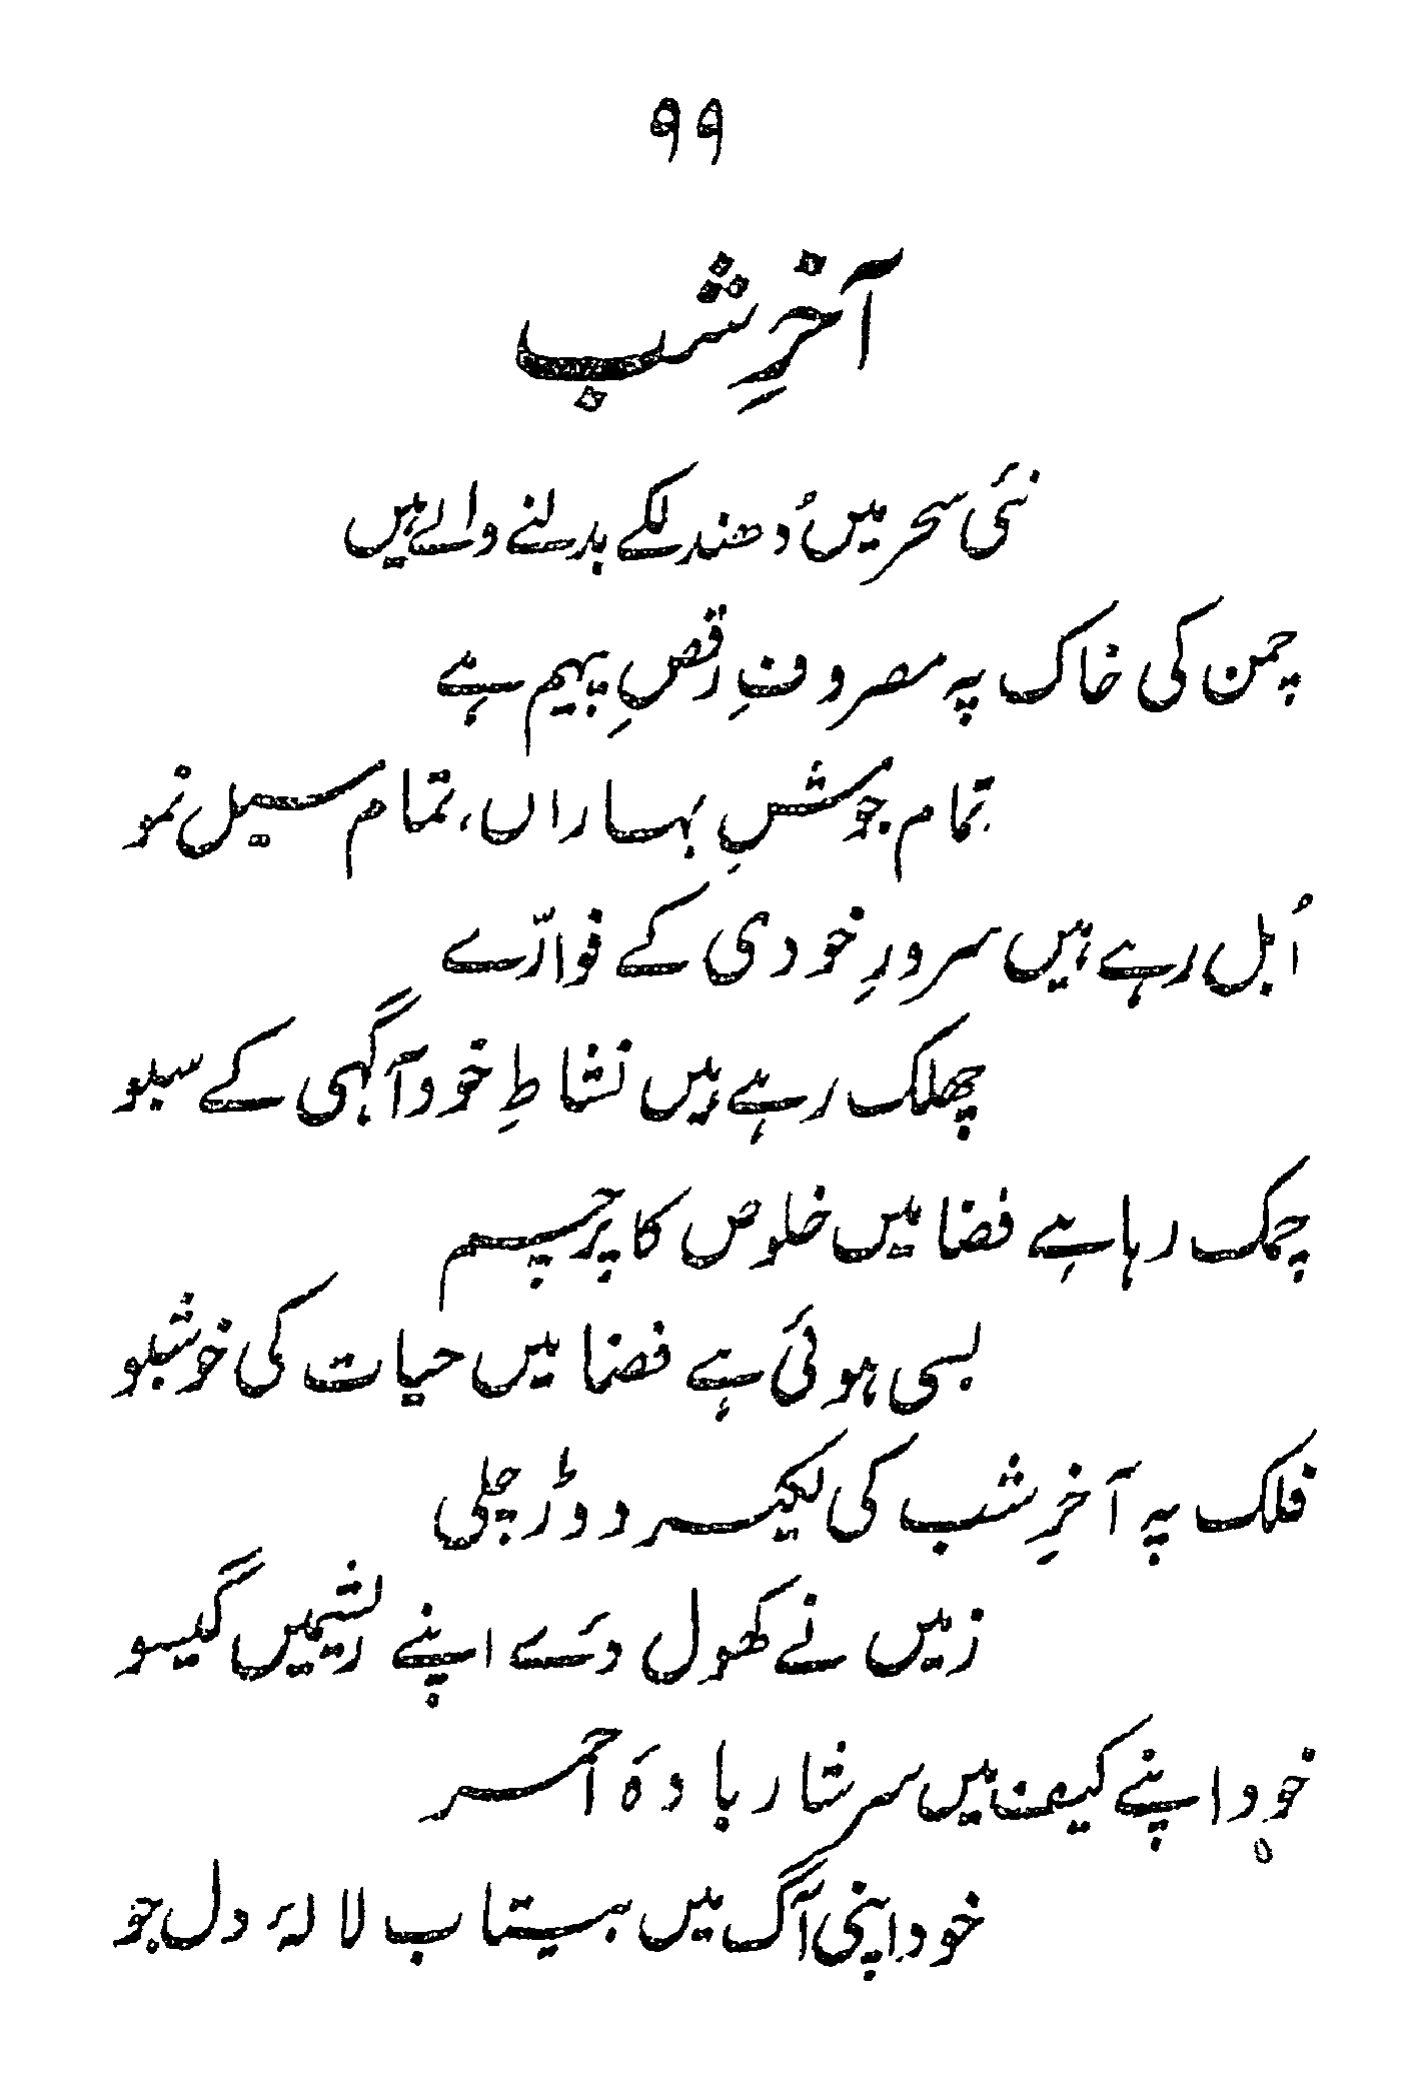 ۹۹
آخرِ شب
نئی سحر میں دُھندلکے بدلنے والے ہیں
چمن کی خاک پہ مصروفِ رقصِ پیہم ہے
تمام جوششِ بہاراں، تمام سیل نمو
اُبل رہے ہیں سرورِ خودی کے فوارّے
چھلک رہے ہیں نشاطِ خود آگہی کے سبو
چمک رہا ہے فضا میں خلوص کا پرچم
بسی ہوئی ہے فضا میں حیات کی خوشبو
فلک پہ آخرِ شب کی لکیر دوڑ چلی
زمیں نے کھول دئے اپنے ریشمیں گیسو
خود اپنے کیف میں سرشار بادۂ احمر
خود اپنی آگ میں بیتاب لالۂ دل جو